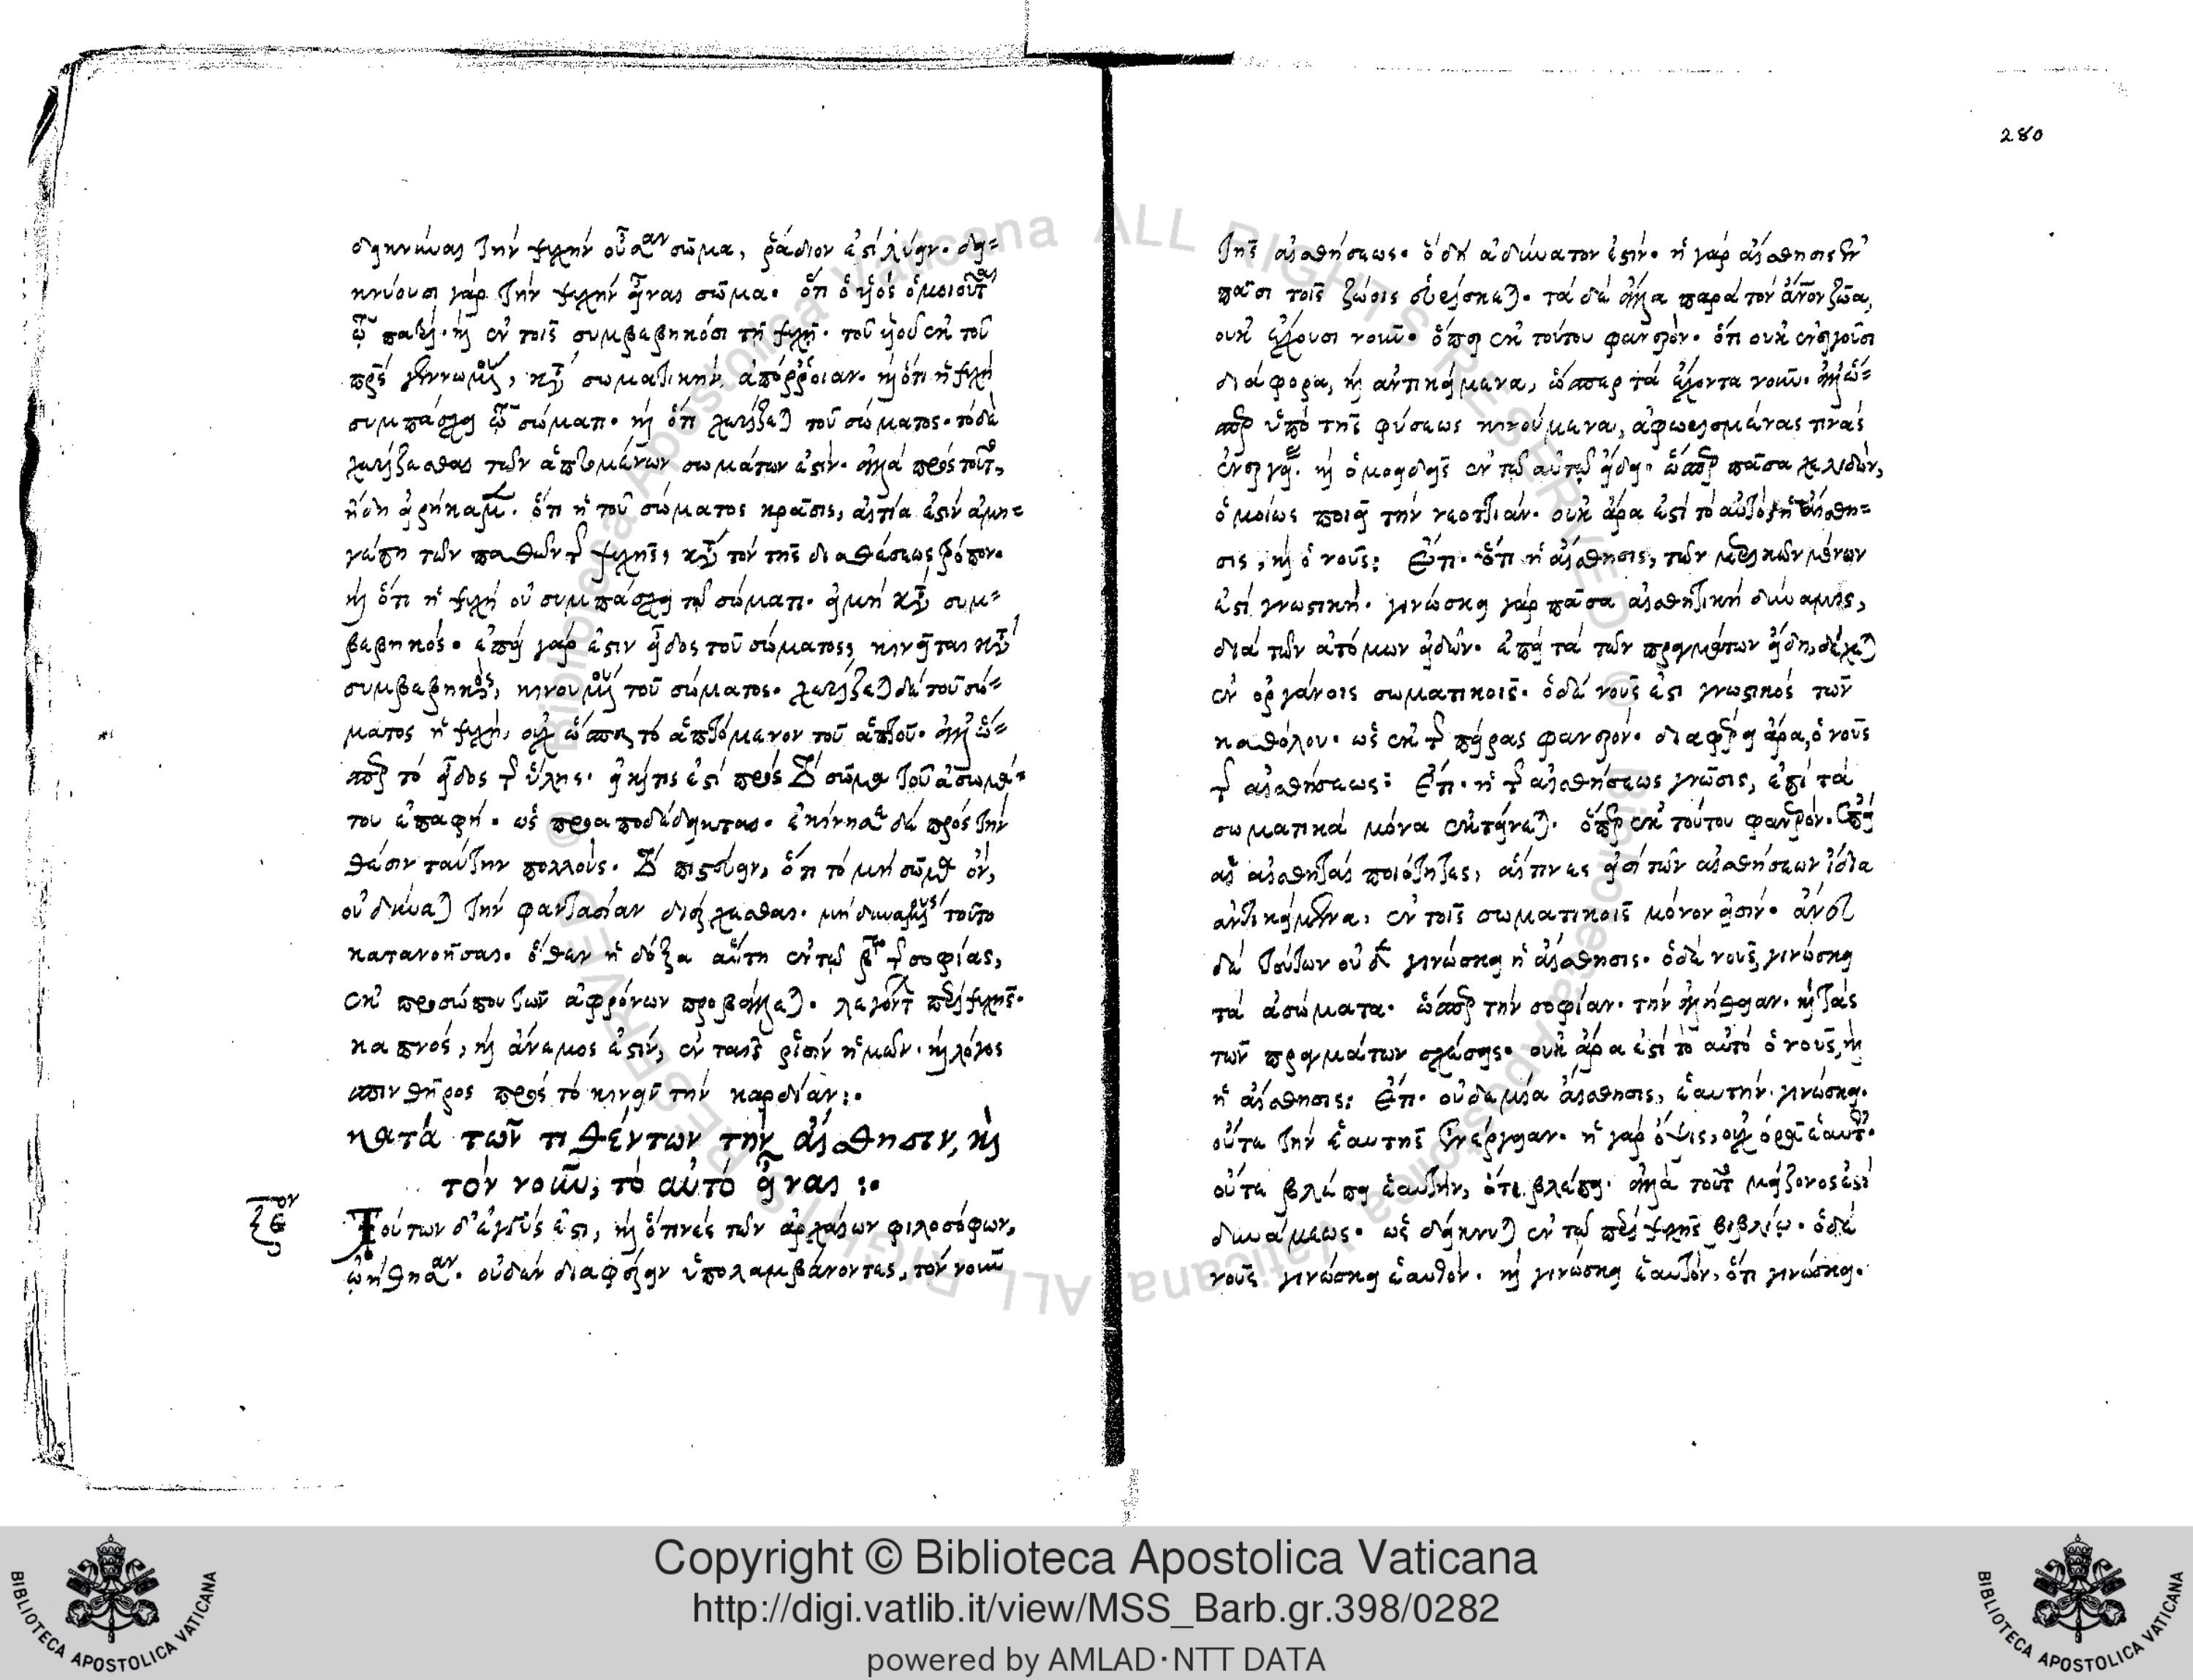 δεικνύναι τὴν ψυχὴν οὖσαν σῶμα, ῥάδιον ἐστὶ λύειν. δει=
κνύουσι γὰρ τὴν ψυχὴν εἶναι σῶμα. ὅτι ὁ υἱὸς ὁμοιοῦται
τῷ πατρὶ. καὶ ἐν τοῖς συμβεβηκόσι τῇ ψυχῇ. τοῦ υἱοῦ ἐκ τοῦ
πρς γεννωμένου, κατὰ σωματικὴν ἀπόρροιαν. καὶ ὅτι ἡ ψυχὴ
συμπάσχει τῷ σώματι. καὶ ὅτι χωρίζεται τοῦ σώματος. τὸ δὲ
χωρίζεσθαι τῶν ἁπτομένων σωμάτων ἐστὶν. ἀλλὰ πρὸς τοῦτο,
ἤδη εἰρήκαμεν. ὅτι ἡ τοῦ σώματος κρᾶσις, αἰτία ἐστὶν ἀμη=
γέπη τῶν παθῶν τῆς ψυχῆς, κατὰ τὸν τῆς διαθέσεως τρόπον.
καὶ ὅτι ἡ ψυχὴ οὐ συμπάσχει τῷ σώματι. εἰ μὴ κατὰ συμ=
βεβηκός. ἐπεὶ γάρ ἐστιν εἶδος τοῦ σώματος, κινεῖται κατὰ
συμβεβηκὸς, κινουμένου τοῦ σώματος. χωρίζεται δὲ τοῦ σώ=
ματος ἡ ψυχὴ, οὐχ ὥσπερ τὸ ἁπτόμενον τοῦ ἁπτοῦ. ἀλλ' ὥσ=
περ τὸ εἶδος τῆς ὕλης. εἰ καί τις ἐστὶ πρὸς τὸ σῶμα τοῦ ἀσωμά=
του ἐπαφή. ὡς προαποδέδεικται. ἐκίνησε δὲ πρὸς τὴν
θέσιν ταύτην πολλοὺς. τὸ πιστεύειν, ὅτι τὸ μὴ σῶμα ὂν,
οὐ δύναται τὴν φαντασίαν διέρχεσθαι. μὴ δυναμένους τοῦτο
κατανοῆσαι. ὅθεν ἡ δόξα αὕτη ἐν τῷ βω τῆς σοφίας,
ἐκ προσώπου τῶν ἀφρόνων προβάλλεται. λεγόντων περὶ ψυχῆς.
καπνός, καὶ ἄνεμος ἐστίν, ἐν ταῖς ῥισὶν ἡμῶν. καὶ λόγος
σπινθῆρος πρὸς τὸ κινεῖν τὴν καρδίαν:.
κατὰ τῶν τιθέντων τὴν αἴσθησιν, καὶ
τὸν νοῦν, τὸ αὐτὸ εἶναι:.
ξςον
Τούτων δ' ἐγγύς ἐστι, καὶ ὅ τινες τῶν ἀρχαίων φιλοσόφων,
ᾠήθησαν. οὐδὲν διαφέρειν ὑπολαμβάνοντες, τὸν νοῦν
280
τῆς αἰσθήσεως. ὃ δὴ ἀδύνατον ἐστίν. ἡ γὰρ αἴσθησις ἐν
πᾶσι τοῖς ζώοις εὑρίσκεται. τὰ δὲ ἄλλα παρὰ τὸν ἄνον ζῶα,
οὐκ ἔχουσι νοῦν. ὅπερ ἐκ τούτου φανερὸν. ὅτι οὐκ ἐνεργοῦσι
διάφορα, καὶ ἀντικείμενα, ὥσπερ τὰ ἔχοντα νοῦν. ἀλλ' ὥσ=
περ ὑπὸ τῆς φύσεως κινούμενα, ἀφωρισμένας τινὰς
ἐνεργείας. καὶ ὁμοειδεῖς ἐν τῷ αὐτῷ εἴδει. ὥσπερ πᾶσα χελιδών,
ὁμοίως ποιεῖ τὴν νεοττιάν. οὐκ ἄρα ἐστὶ τὸ αὐτὸ, ἡ αἴσθη=
σις, καὶ ὁ νοῦς: Ἔτι. ὅτι ἡ αἴσθησις, τῶν μερικῶν μόνων
ἐστὶ γνωστική. γινώσκει γὰρ πᾶσα αἰσθητικὴ δύναμις,
διὰ τῶν ἀτόμων εἰδῶν. ἐπεὶ τὰ τῶν πραγμάτων εἴδη, δέχεται
ἐν ὀργάνοις σωματικοῖς. ὁ δὲ νοῦς ἐστι γνωστικὸς τῶν
καθόλου. ὡς ἐκ τῆς πείρας φανερόν. διαφέρει ἄρα, ὁ νοῦς
τῆς αἰσθήσεως: Ἔτι. ἡ τῆς αἰσθήσεως γνῶσις, ἐπὶ τὰ
σωματικὰ μόνα ἐκτείνεται. ὅπερ ἐκ τούτου φανερόν. ἐπεὶ
αἱ αἰσθηταὶ ποιότητες, αἵτινες εἰσὶ τῶν αἰσθήσεων ἴδια
ἀντικείμενα, ἐν τοῖς σωματικοῖς μόνον εἰσίν. ἄνευ
δὲ τούτων οὐδὲν γινώσκει ἡ αἴσθησις. ὁ δὲ νοῦς, γινώσκει
τὰ ἀσώματα. ὥσπερ τὴν σοφίαν. τὴν ἀλήθειαν. καὶ τὰς
τῶν πραγμάτων σχέσεις. οὐκ ἄρα ἐστὶ τὸ αὐτὸ ὁ νοῦς, καὶ
ἡ αἴσθησις: Ἔτι. οὐδεμία αἴσθησις, ἑαυτὴν γινώσκει.
οὔτε τὴν ἑαυτῆς ἐνέργειαν. ἡ γὰρ ὄψις, οὐχ ὁρᾷ ἑαυτὴν.
οὔτε βλέπει ἑαυτὴν, ὅτι βλέπει. ἀλλὰ τοῦτο μείζονος ἐστὶ
δυνάμεως. ὡς δείκνυται ἐν τῷ περὶ ψυχῆς βιβλίῳ. ὁ δὲ
νοῦς γινώσκει ἑαυτὸν. καὶ γινώσκει ἑαυτὸν, ὅτι γινώσκει.
Copyright © Biblioteca Apostolica Vaticana
http://digi.vatlib.it/view/MSS_Barb.gr.398/0282
powered by AMLAD·NTT DATA